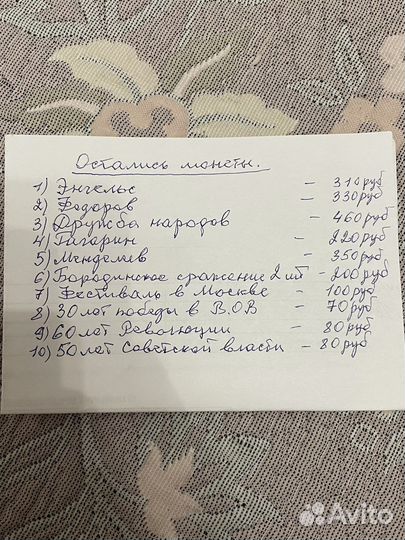 Остались монеты.
1) Энгельс – 310 руб
2) Федоров – 330 руб
3) Дружба народов – 460 руб
4) Гагарин – 220 руб
5) Менделеев – 350 руб
6) Бородинское сражение 2 шт – 200 руб
7) Фестиваль в Москве – 100 руб
8) 30 лет победы в В.О.В – 70 руб
9) 60 лет Революции – 80 руб
10) 50 лет Советской власти – 80 руб
Avito